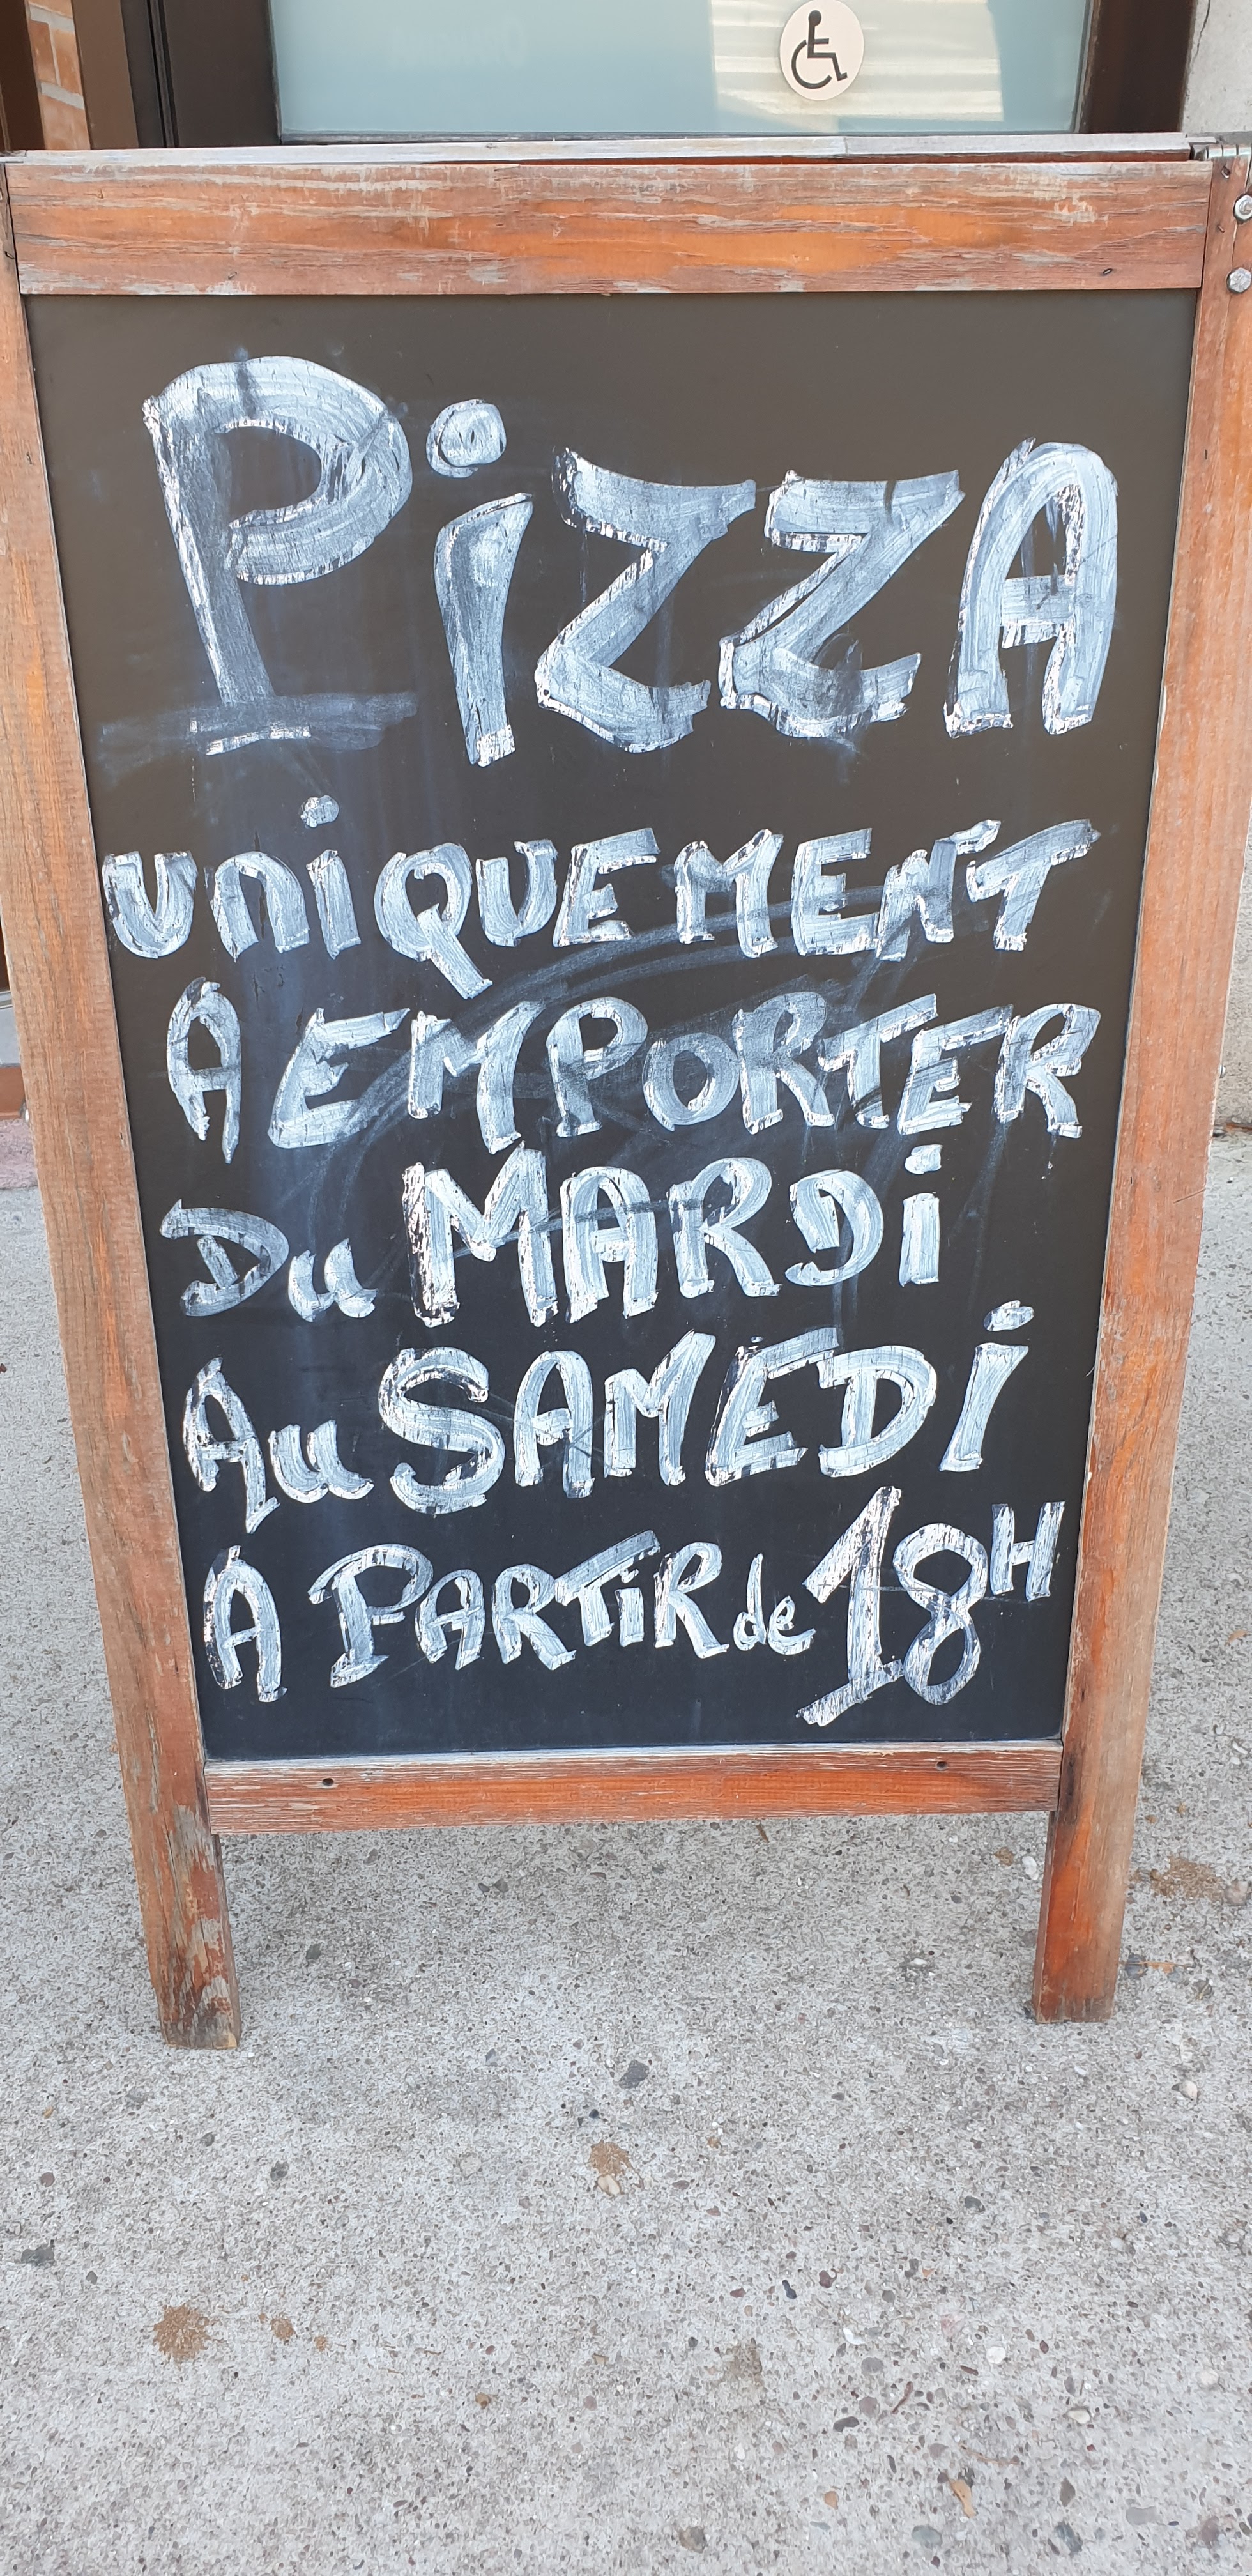 PiZZA
UNiQUEMENT
A EMPORTER
Du MARDi
Au SAMEDi
A PARTiR de 18H